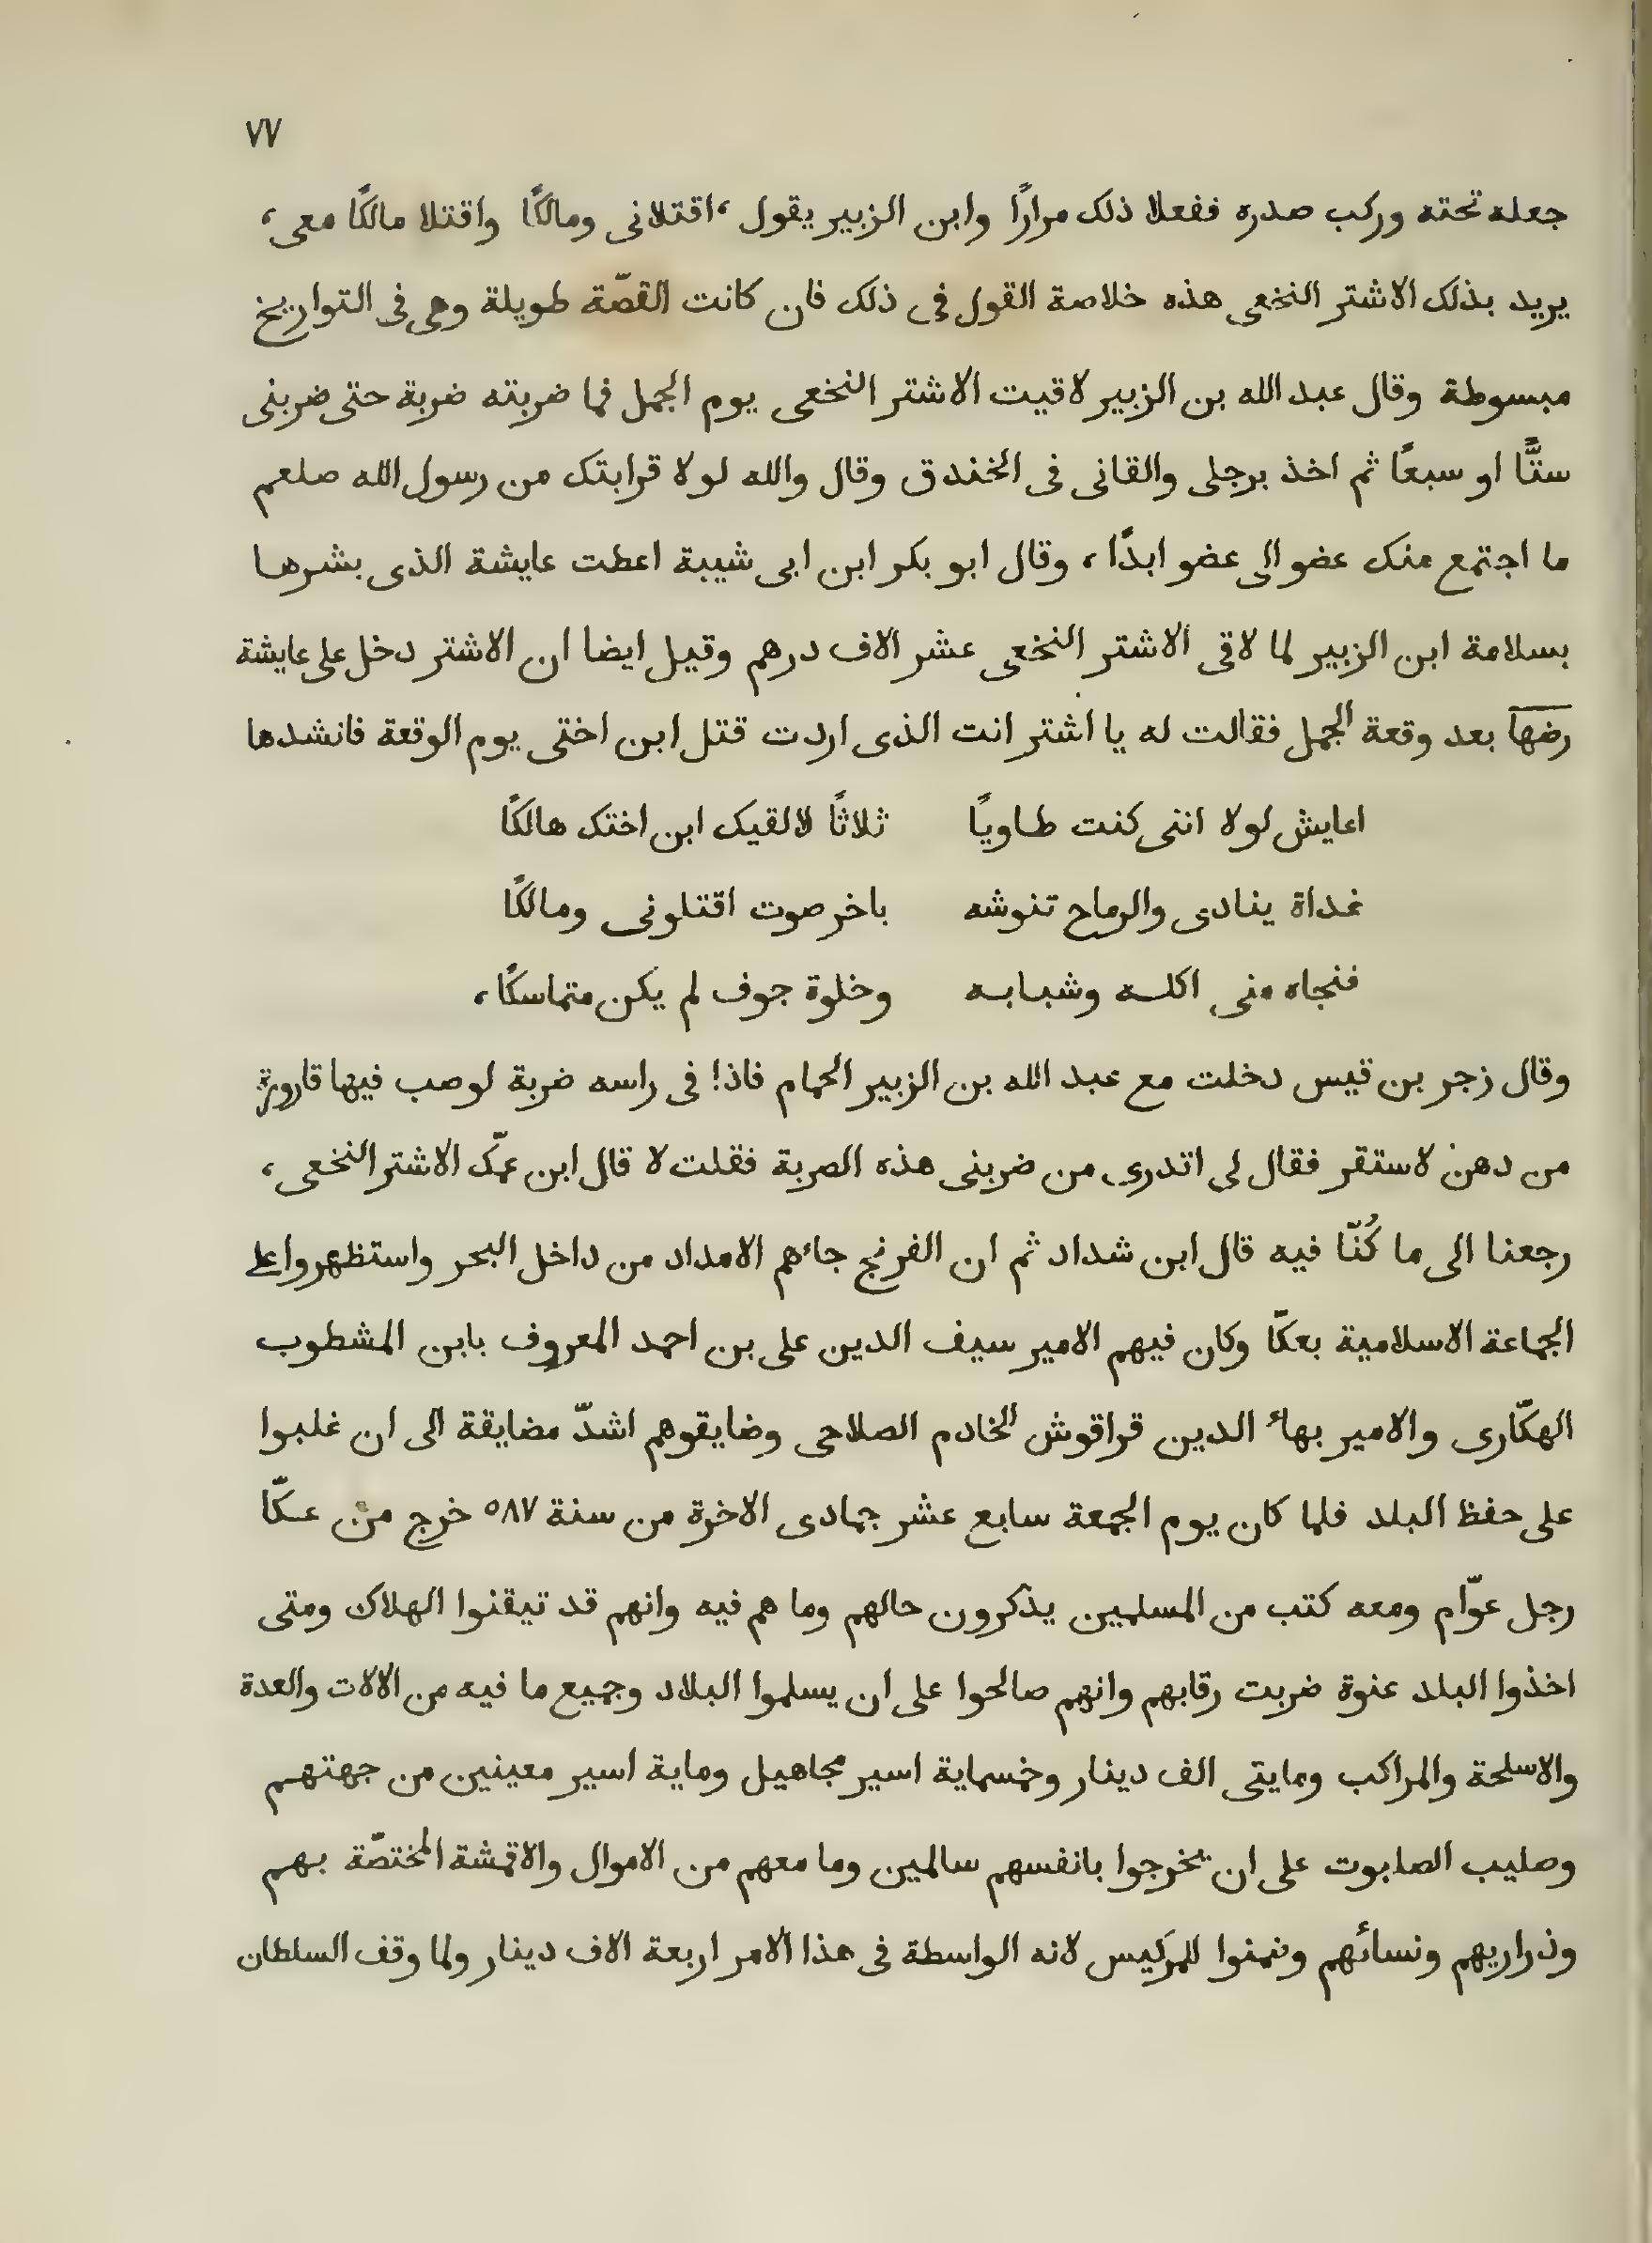 ٧٧
جعله تحته وركب صدره ففعلا ذلك مرارًا وابن الزبير يقول، اقتلانى ومالكًا واقتلا مالكًا معى،
يريد بذلك الاشتر النخعى هذه خلاصة القول فى ذلك فان كانت القصّة طويلة وهى فى التواريخ
مبسوطة وقال عبد الله بن الزبير لاقيت الاشتر النخعى يوم الجمل فما ضربته ضربة حتى ضربنى
ستًّا او سبعًا ثم اخذ برجلى والقانى فى الخندق وقال والله لولا قرابتك من رسول الله صلعم
ما اجتمع منك عضو الى عضو ابدًا، وقال ابو بكر ابن ابى شيبة اعطت عايشة الذى بشرها
بسلامة ابن الزبير لما لاقى الاشتر النخعى عشر الاف درهم وقيل ايضا ان الاشتر دخل على عايشة
رضها بعد وقعة الجمل فقالت له يا اشتر انت الذى اردت قتل ابن اختى يوم الوقعة فانشدها
اعايش لولا اننى كنت طاويًا ثلاثًا لالقيك ابن اختك هالكًا
غداة ينادى والرماح تنوشه باخر صوت اقتلونى ومالكًا
فنجاه منى اكله وشبابه وخلوة جوف لم يكن متماسكًا،
وقال زجر بن قيس دخلت مع عبد الله بن الزبير الحمام فاذا فى راسه ضربة لو صب فيها قارورة
من دهن لاستقر فقال لى اتدرى من ضربنى هذه الصربة فقلت لا قال ابن عمّك الاشتر النخعى،
رجعنا الى ما كُنّا فيه قال ابن شداد ثم ان الفرنج جاءهم الامداد من داخل البحر واستظهروا على
الجماعة الاسلامية بعكّا وكان فيهم الامير سيف الدين على بن احمد المعروف بابن المشطوب
الهكّارى والامير بهاء الدين قراقوش الخادم الصلاحى وضايقوهم اشدّ مضايقة الى ان غلبوا
على حفظ البلد فلما كان يوم الجمعة سابع عشر جمادى الاخرة من سنة ٥٨٧ خرج من عكّا
رجل عوّام ومعه كتب من المسلمين يذكرون حالهم وما هم فيه وانهم قد تيقنوا الهلاك ومتى
اخذوا البلد عنوة ضربت رقابهم وانهم صالحوا على ان يسلموا البلاد وجميع ما فيه من الالات والعدة
والاسلحة والمراكب ومايتى الف دينار وخمسماية اسير مجاهيل وماية اسير معينين من جهتهم
وصليب الصلبوت على ان يخرجوا بانفسهم سالمين وما معهم من الاموال والاقمشة المختصّة بهم
وذراريهم ونسائهم وضمنوا للمركيس لانه الواسطة فى هذا الامر اربعة الاف دينار ولما وقف السلطان